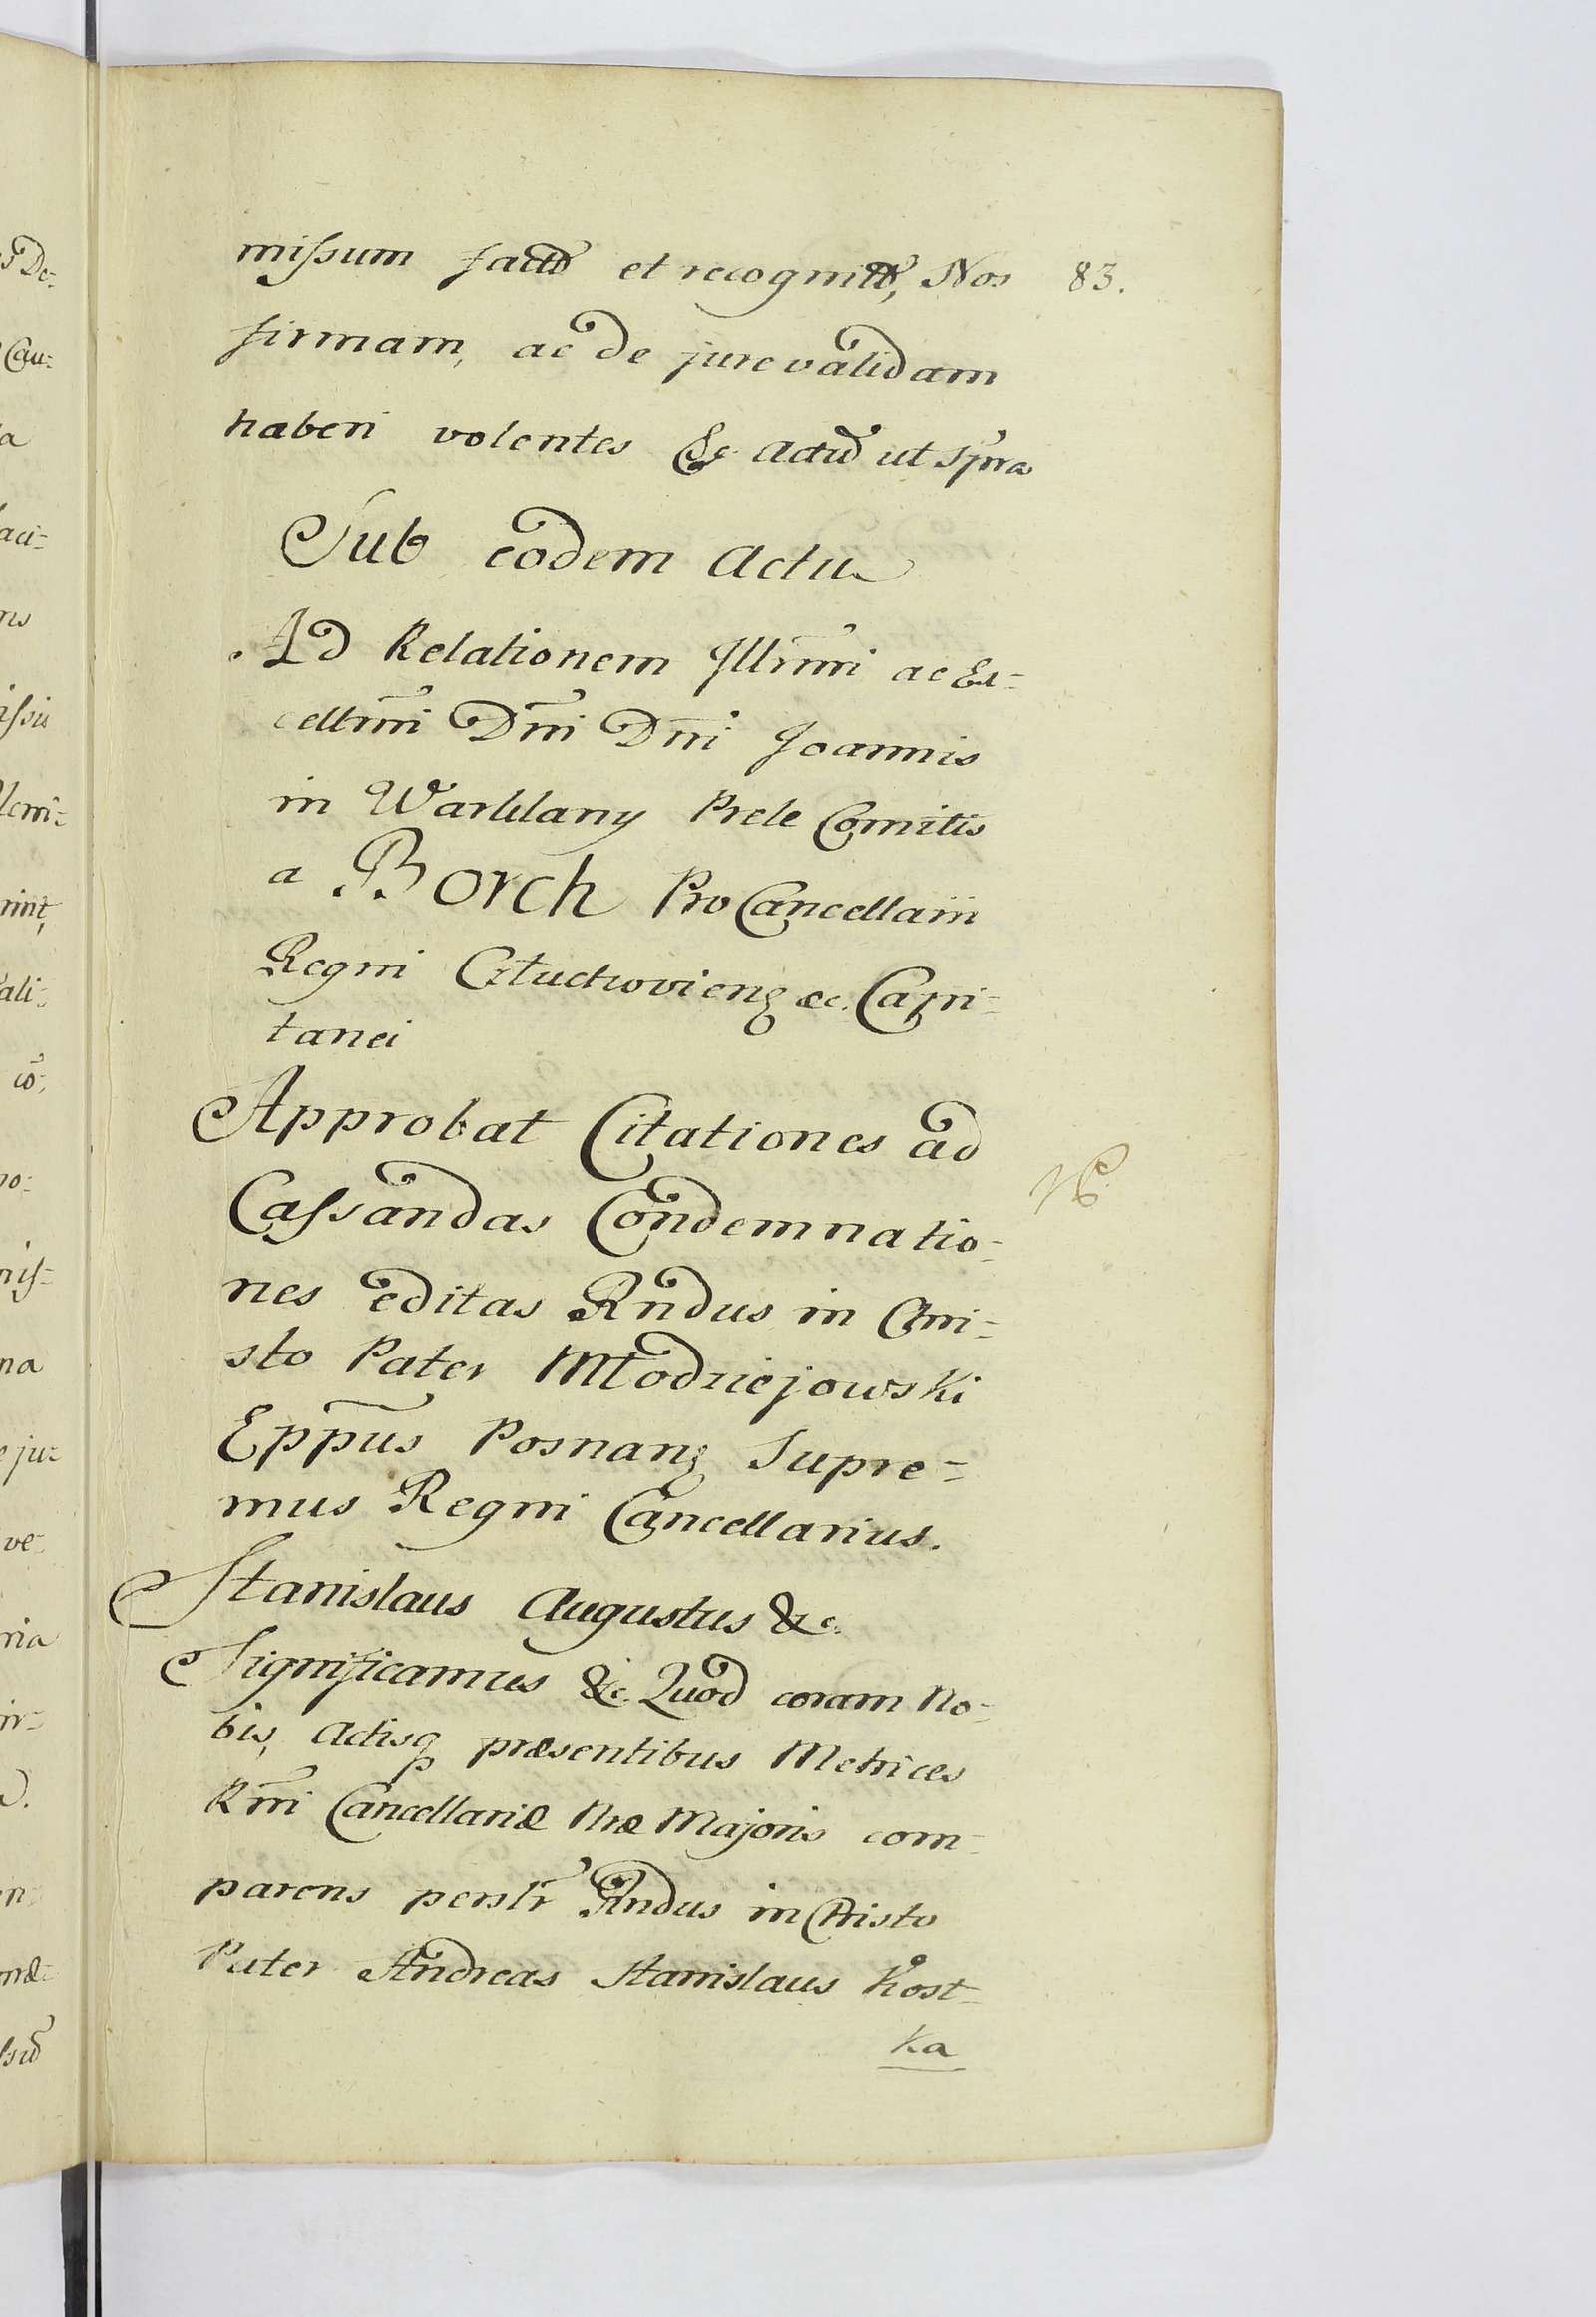 missum factũ et recognitũ, Nos 83.
firmam, ac de jure validam
haberi volentes &c Actũ ut spra
Sub eodem Actu
Ad Relationem Jllrmi ac Ex=
cellrmi Dni Dni Joannis
in Warklany Prele Comitis
a Borch Pro Cancellarii
Regni &c. Capi=
tanei
Approbat Citationes ad
Cassandas Condemnatio=
nes editas Rndus in Chri=
sto Pater Młodziejowski
Eppus Posnang Supre=
mus Regni Cancellarius.
Stanislaus Augustus &c.
Significamus &c. Quod coram No=
bis, Actisq præsentibus Metrices
Rni Cancellariæ Nræ Majoris com=
parens personlr Rndus in Christo
Pater Andreas Stanislaus Kost=
ka